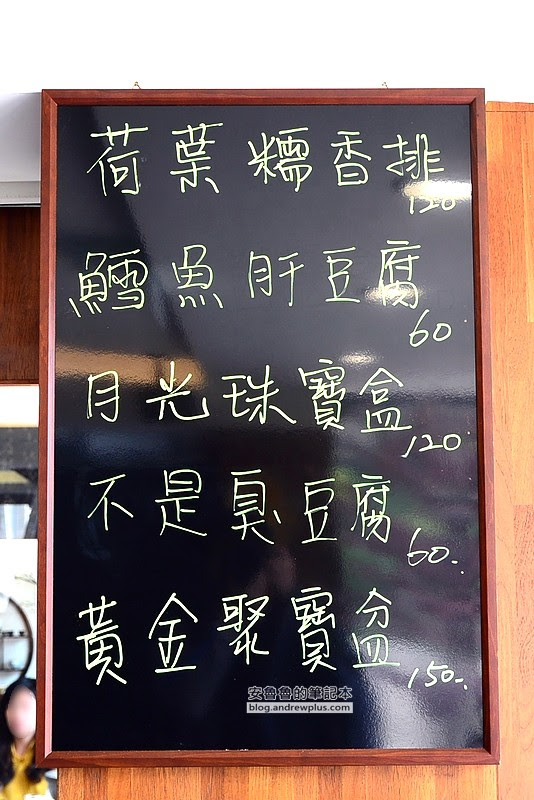 荷葉糯香排
120
鱈魚肝豆腐
60
月光珠寶盒
120
不是臭豆腐
60.
黃金聚寶盆
150.-
安魯魯的筆記本
blog.andrewplus.com